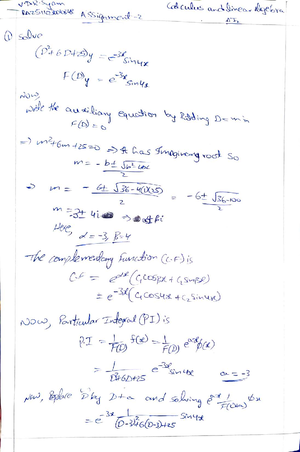 Assignment-2
Calculus and linear Algebra
① Solve
(D²+6D+25)y = e^-3x sin4x
F(D)y = e^-3x sin4x
Now,
write the auxiliary equation by D=m in
F(D)=0
=> m²+6m+25=0 => It has Imaginary root So
m = -b±√b²-4ac / 2
=> m = -6±√36-4(1)(25) / 2 = -6±√36-100 / 2
m = -3±4i
Here,
α=-3, β=4
The complementary Function (C.F) is
C.F = e^αx (C₁cosβx + C₂sinβx)
= e^-3x (C₁cos4x + C₂sin4x)
NOW, Particular Integral (PI) is
P.I = 1/F(D) f(x) = 1/F(D) e^αx
= 1/D²+6D+25 e^-3x sin4x a=-3
Now, Replace D by D+a and solving
= e^-3x 1/(D-3)²+6(D-3)+25 sin4x